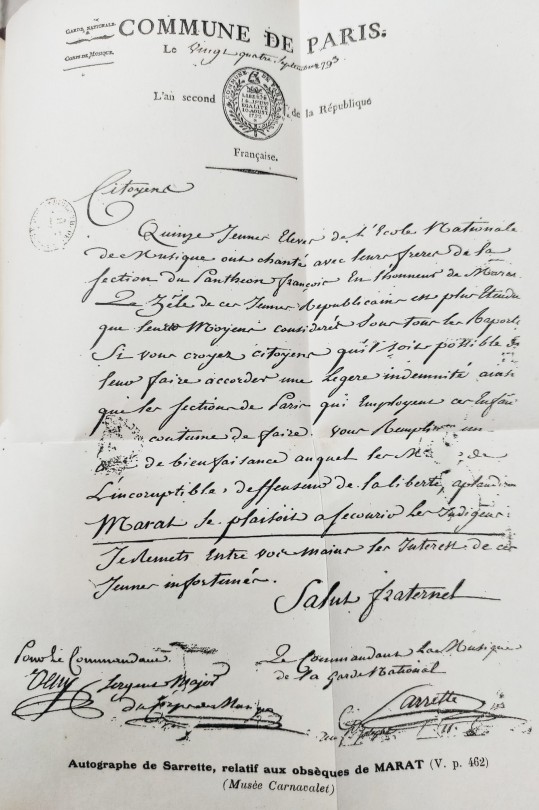 GARDE NATIONALE.
CORPS DE MUSIQUE.
COMMUNE DE PARIS.
Le vingt quatre Septembre 1793
L'an second de la République
COMMUNE DE PARIS
LIBERTÉ
ÉGALITÉ
1792
Française.
Citoyens
Quinze Jeunes Eleves de l'Ecole Nationale
de Musique ont chanté avec leurs freres de la
section du Pantheon françois En lhonneur de Marat
Le Zêle de ces Jeunes Republicains est plus Etendu
que leurs Moyens considerés sous tous les Raports
Si vous croyez citoyens qu'il soit possible de
leur faire accorder une legere indemnité ainsi
que les sections de Paris qui Employent ces Enfans
coutume de faire. vous Remplirés un
de bienfaisance auquel les de
L'incoruptible deffenseur de la liberté, aplaudira
Marat se plaisoit a secourir les Indigens
Je Remets Entre vos mains les Interest de ces
Jeunes infortunés.
Salut fraternel
Pour le Commandant
Sergent Major
du Corps de Musique
Le Commandant La Musique
de la garde National
Sarrette
Autographe de Sarrette, relatif aux obsèques de MARAT (V. p. 462)
(Musée Carnavalet)